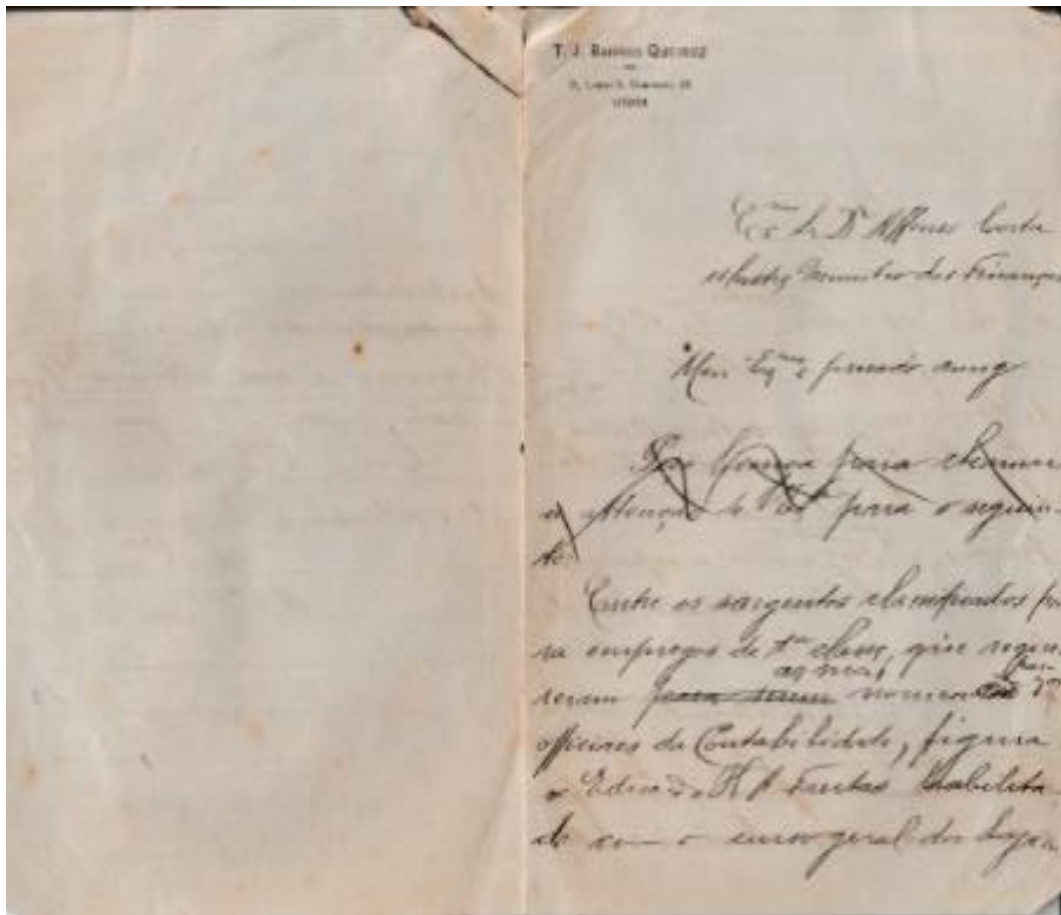 T. J. Barros Queiroz
LISBOA
Exmo Sr Dr Affonso Costa
Ministro das Finanças
Meu Exmo e presado amigo
para chamar
a attenção de V. Exa para o seguin-
te:
Entre os sargentos classificados pa
ra empregos de 1ra classe, que reque
as
reram para serem nomeados
officiaes da Contabilidade, figura
o Eduardo H A Freitas habilita
do com o curso geral dos lyceu